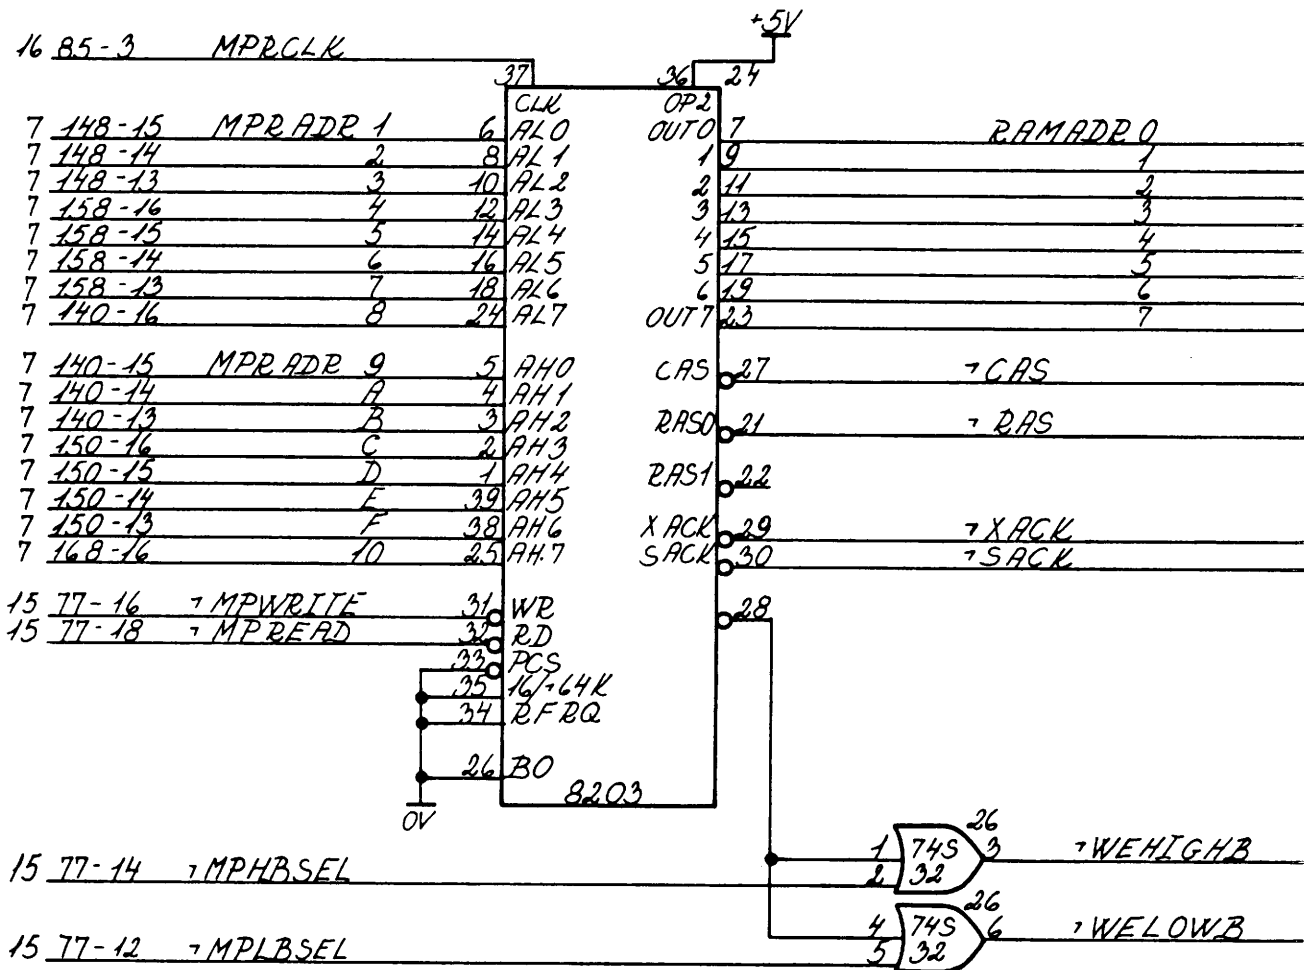 +5V
16 85-3 MPRCLK
37 36 24
CLK OP2
7 148-15 MPRADR 1 6 AL0 OUT0 7 RAMADR 0
7 148-14 2 8 AL1 1 9 1
7 148-13 3 10 AL2 2 11 2
7 158-16 4 12 AL3 3 13 3
7 158-15 5 14 AL4 4 15 4
7 158-14 6 16 AL5 5 17 5
7 158-13 7 18 AL6 6 19 6
7 140-16 8 24 AL7 OUT7 23 7
7 140-15 MPRADR 9 5 AH0 CAS 27 ¬CAS
7 140-14 A 4 AH1
7 140-13 B 3 AH2 RAS0 21 ¬RAS
7 150-16 C 2 AH3
7 150-15 D 1 AH4 RAS1 22
7 150-14 E 39 AH5
7 150-13 F 38 AH6 XACK 29 ¬XACK
7 168-16 10 25 AH7 SACK 30 ¬SACK
15 77-16 ¬MPWRITE 31 WR 28
15 77-18 ¬MPREAD 32 RD
33 PCS
35 16/¬64K
34 RFRQ
26 B0
8203
0V
26
15 77-14 ¬MPHBSEL 1 2 74S 32 3 ¬WEHIGHB
26
15 77-12 ¬MPLBSEL 4 5 74S 32 6 ¬WELOWB